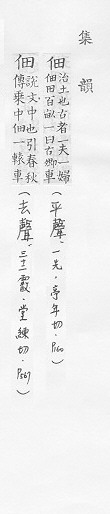 集韻
佃 治土也古者一夫一婦佃田百畝一曰古卿車（平聲、一先·亭年切·P160）
佃 說文中也引春秋傳乘中佃一轅車（去聲、三十二霰·堂練切·）